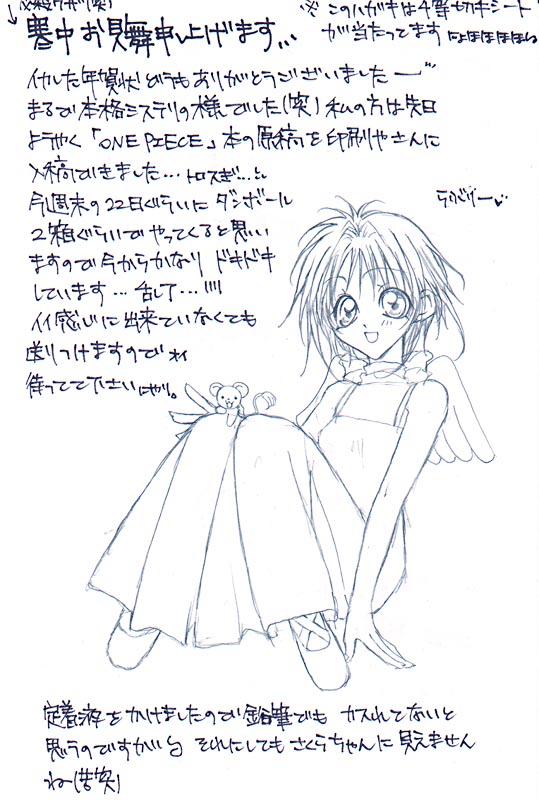 必殺ワザ(笑)
※ このハガキは4等切手シート
が当たってます にょほほほほほ
寒中お見舞申し上げます...
イカした年賀状どうもありがとうございましたー
まるで本格ミステリの様でした(笑) 私の方は先日
ようやく「ONE PIECE」本の原稿を印刷やさんに
入稿できました... トロスぎ...
今週末の22日ぐらいに ダンボール
2箱ぐらいでやってくると思い
ますので今からかなり ドキドキ
しています... 乱丁... !!!!
イイ感じに出来ていなくても
送りつけますので
待ってて下さい にやり。
ラブリー
定着液をかけましたので鉛筆でも カスれてないと
思うのですが それにしても さくらちゃんに 見えません
ね(苦笑)